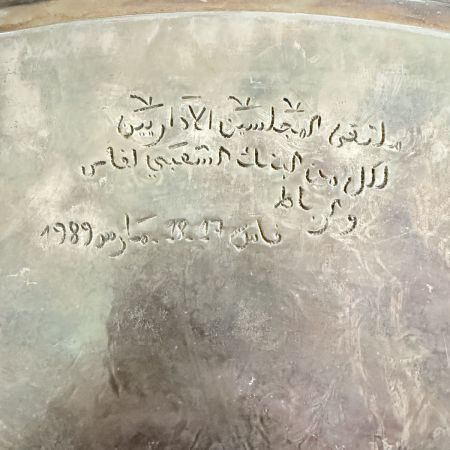 ملتقى المجلسين الاداريين
لكل من البنك الشعبي لفاس
والرباط
فاس 17 - 18 مارس 1989